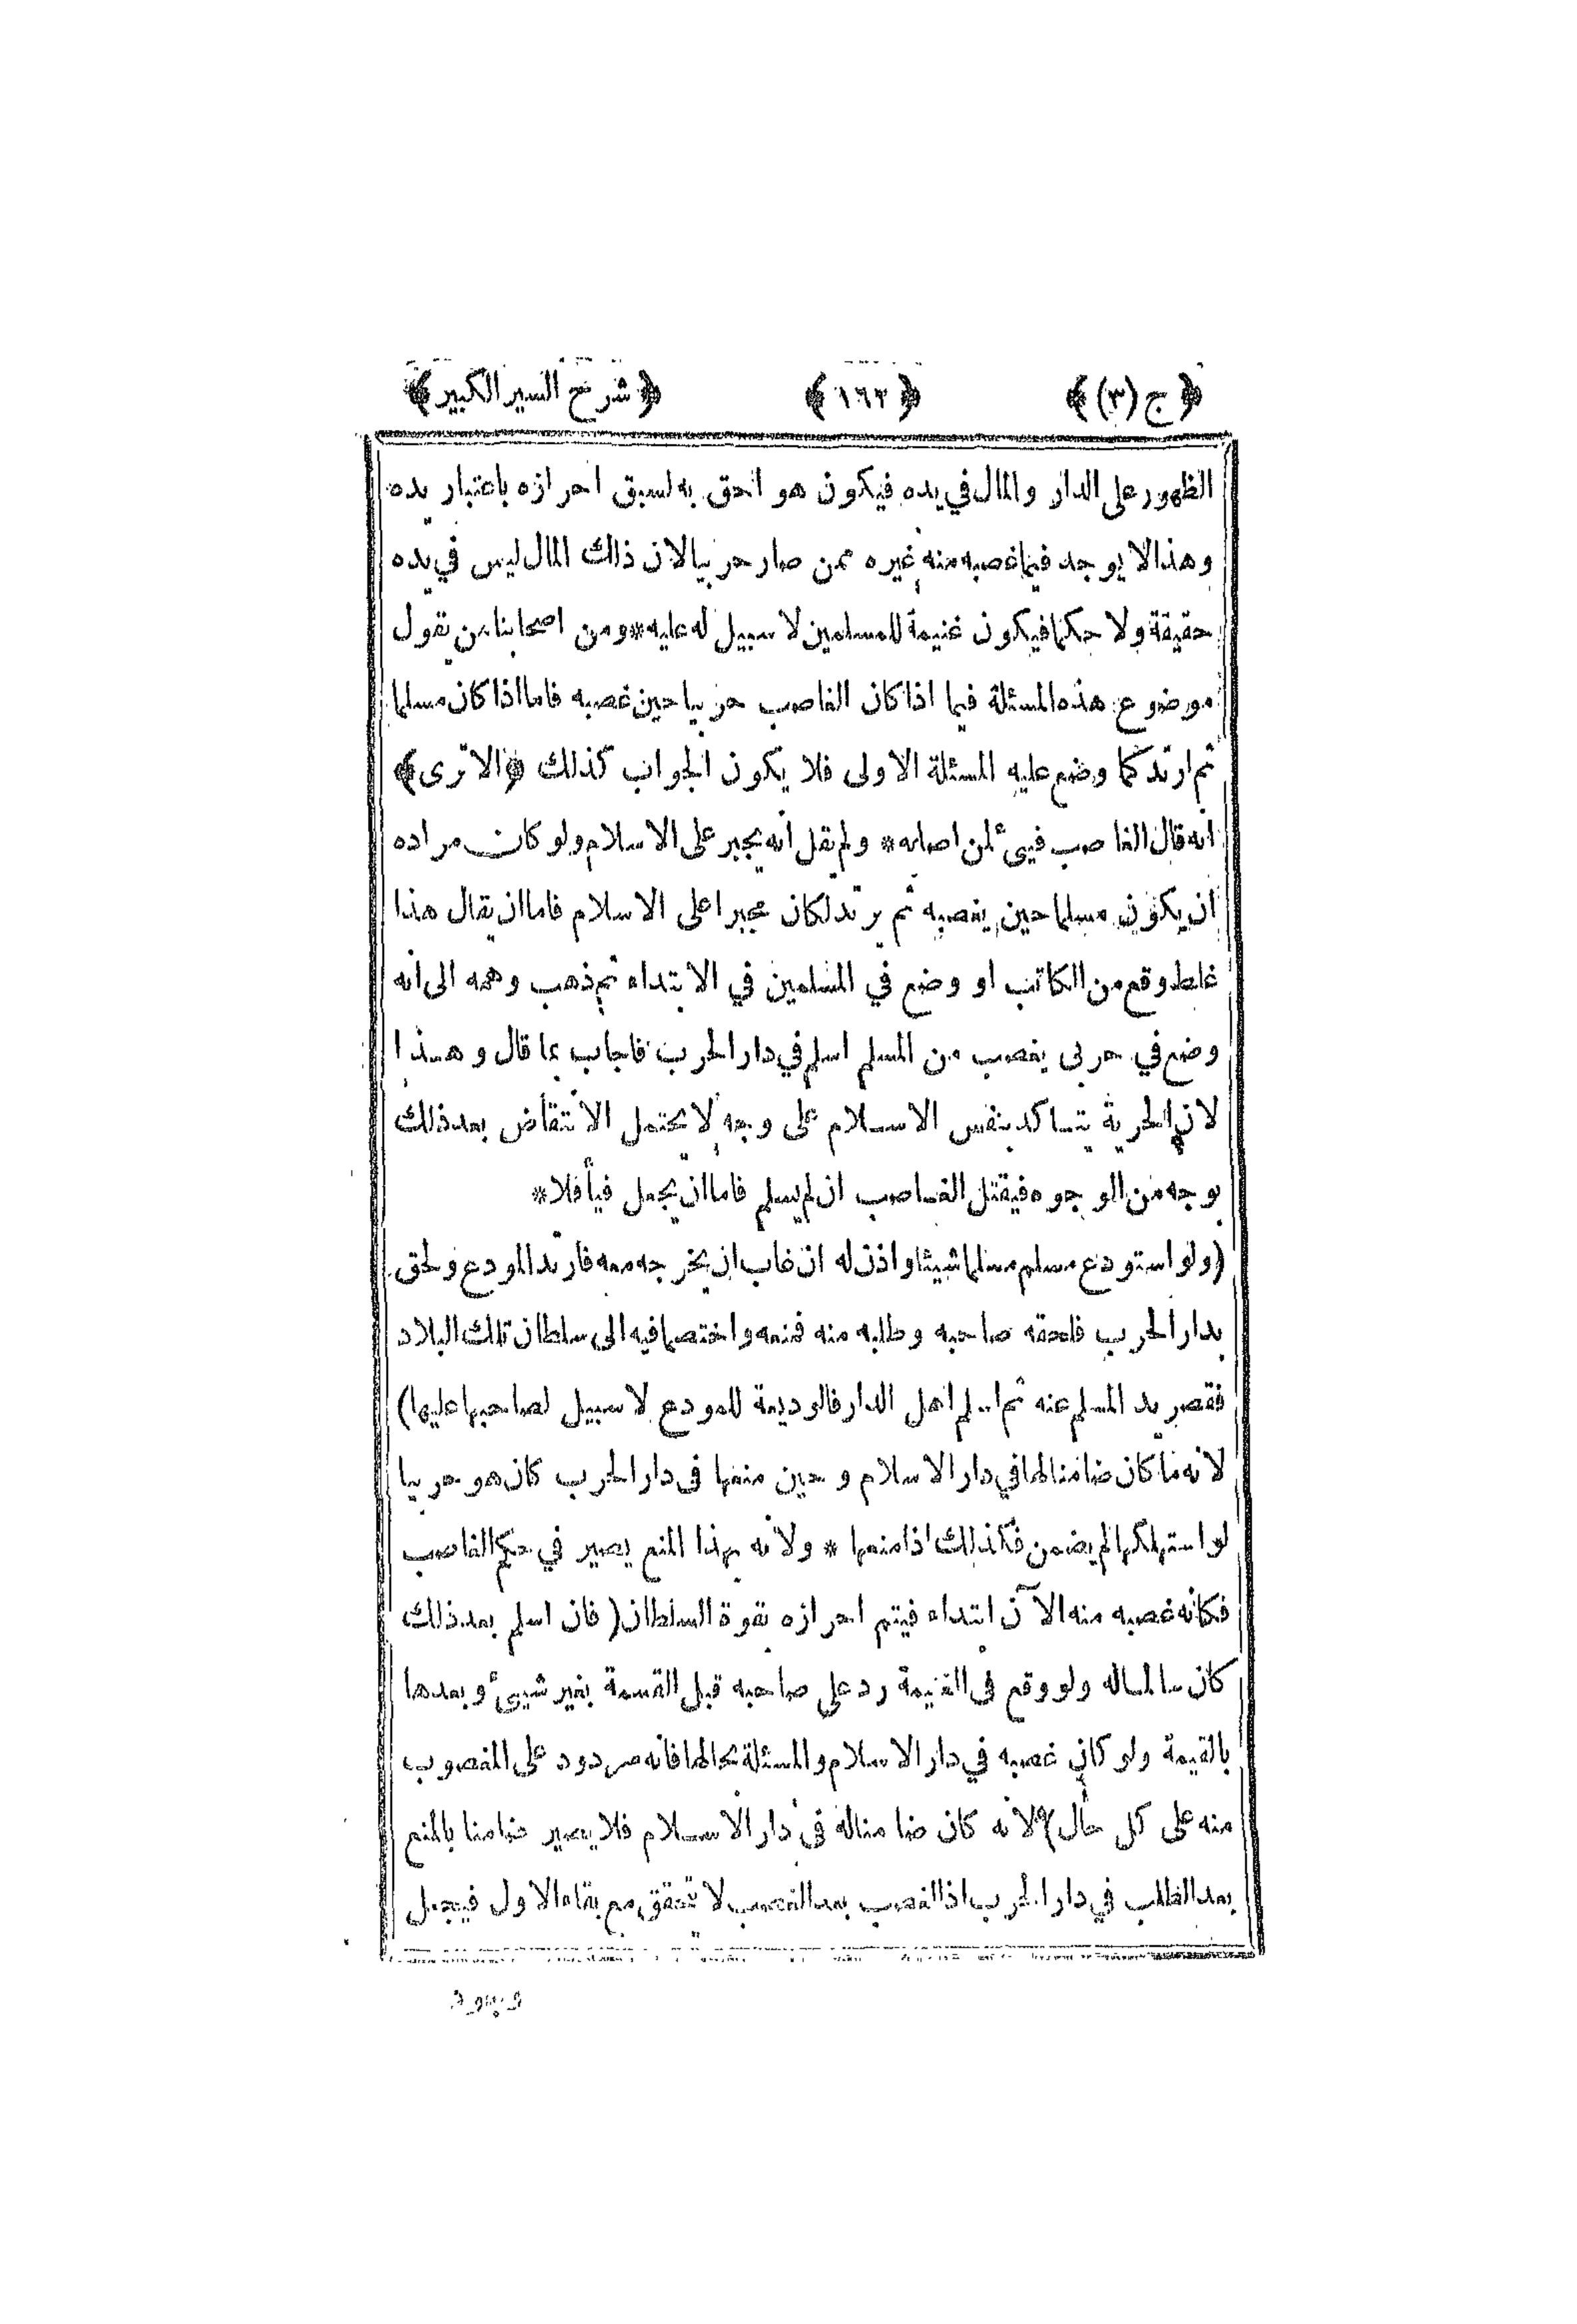 ﴿ ج (٣) ﴾ ﴿ ١٦٣ ﴾ ﴿ شرح السير الكبير ﴾
الظهور على الدار والمال في يده فيكون هو احق به لسبق احرازه باعتبار يده
وهذا لا يوجد فيما غصبه منه غيره ممن صار حربيا لان ذلك المال ليس في يده
حقيقة ولا حكما فيكون غنيمة للمسلمين لا سبيل له عليه * ومن اصحابنا من يقول
موضوع هذه المسئلة فيما اذا كان الغاصب حربيا حين غصبه فاما اذا كان مسلما
ثم ارتد كما وضع عليه المسئلة الاولى فلا يكون الجواب كذلك ﴿ الا ترى ﴾
انه قال الغاصب فيئ لمن اصابه * ولم يقل انه يجبر على الاسلام ولو كان مراده
ان يكون مسلما حين يغصبه ثم يرتد لكان مجبرا على الاسلام فاما ان يقال هذا
غلط وقع من الكاتب او وضع في المسلمين في الابتداء ثم ذهب وهمه الى انه
وضع في حربى يغصب من المسلم اسلم في دار الحرب فاجاب بما قال وهذا
لان الحرية يتأكد بنفس الاسلام على وجه لا يحتمل الانتقاض بعد ذلك
بوجه من الوجوه فيقتل الغاصب ان لم يسلم فاما ان يجعل فيأ فلا *
(ولو استودع مسلم مسلما شيئا واذن له ان غاب ان يخرجه معه فارتد المودع ولحق
بدار الحرب فلحقه صاحبه وطلبه منه فمنعه واختصما فيه الى سلطان تلك البلاد
فقصر يد المسلم عنه ثم اسلم اهل الدار فالوديعة للمودع لا سبيل لصاحبها عليها)
لانه ما كان ضامنا لها في دار الاسلام وحين منعها فى دار الحرب كان هو حربيا
لو استهلكها لم يضمن فكذلك اذا منعها * ولانه بهذا المنع يصير في حكم الغاصب
فكانه غصبه منه الآن ابتداء فيتم احرازه بقوة السلطان (فان اسلم بعد ذلك
كان سالما له ولو وقع فى الغنيمة رد على صاحبه قبل القسمة بغير شيئ وبعدها
بالقيمة ولو كان غصبه في دار الاسلام والمسئلة بحالها فانه مردود على المغصوب
منه على كل حال) لانه كان ضامنا له فى دار الاسلام فلا يصير ضامنا بالمنع
بعد الطلب في دار الحرب اذ الغصب بعد الغصب لا تحقق مع بقاء الاول فيجعل